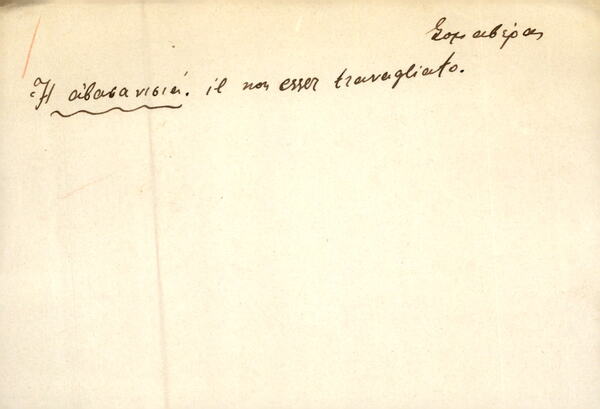 Σομαβέρας
Ἡ ἀβασανισιά. il non esser travagliato.